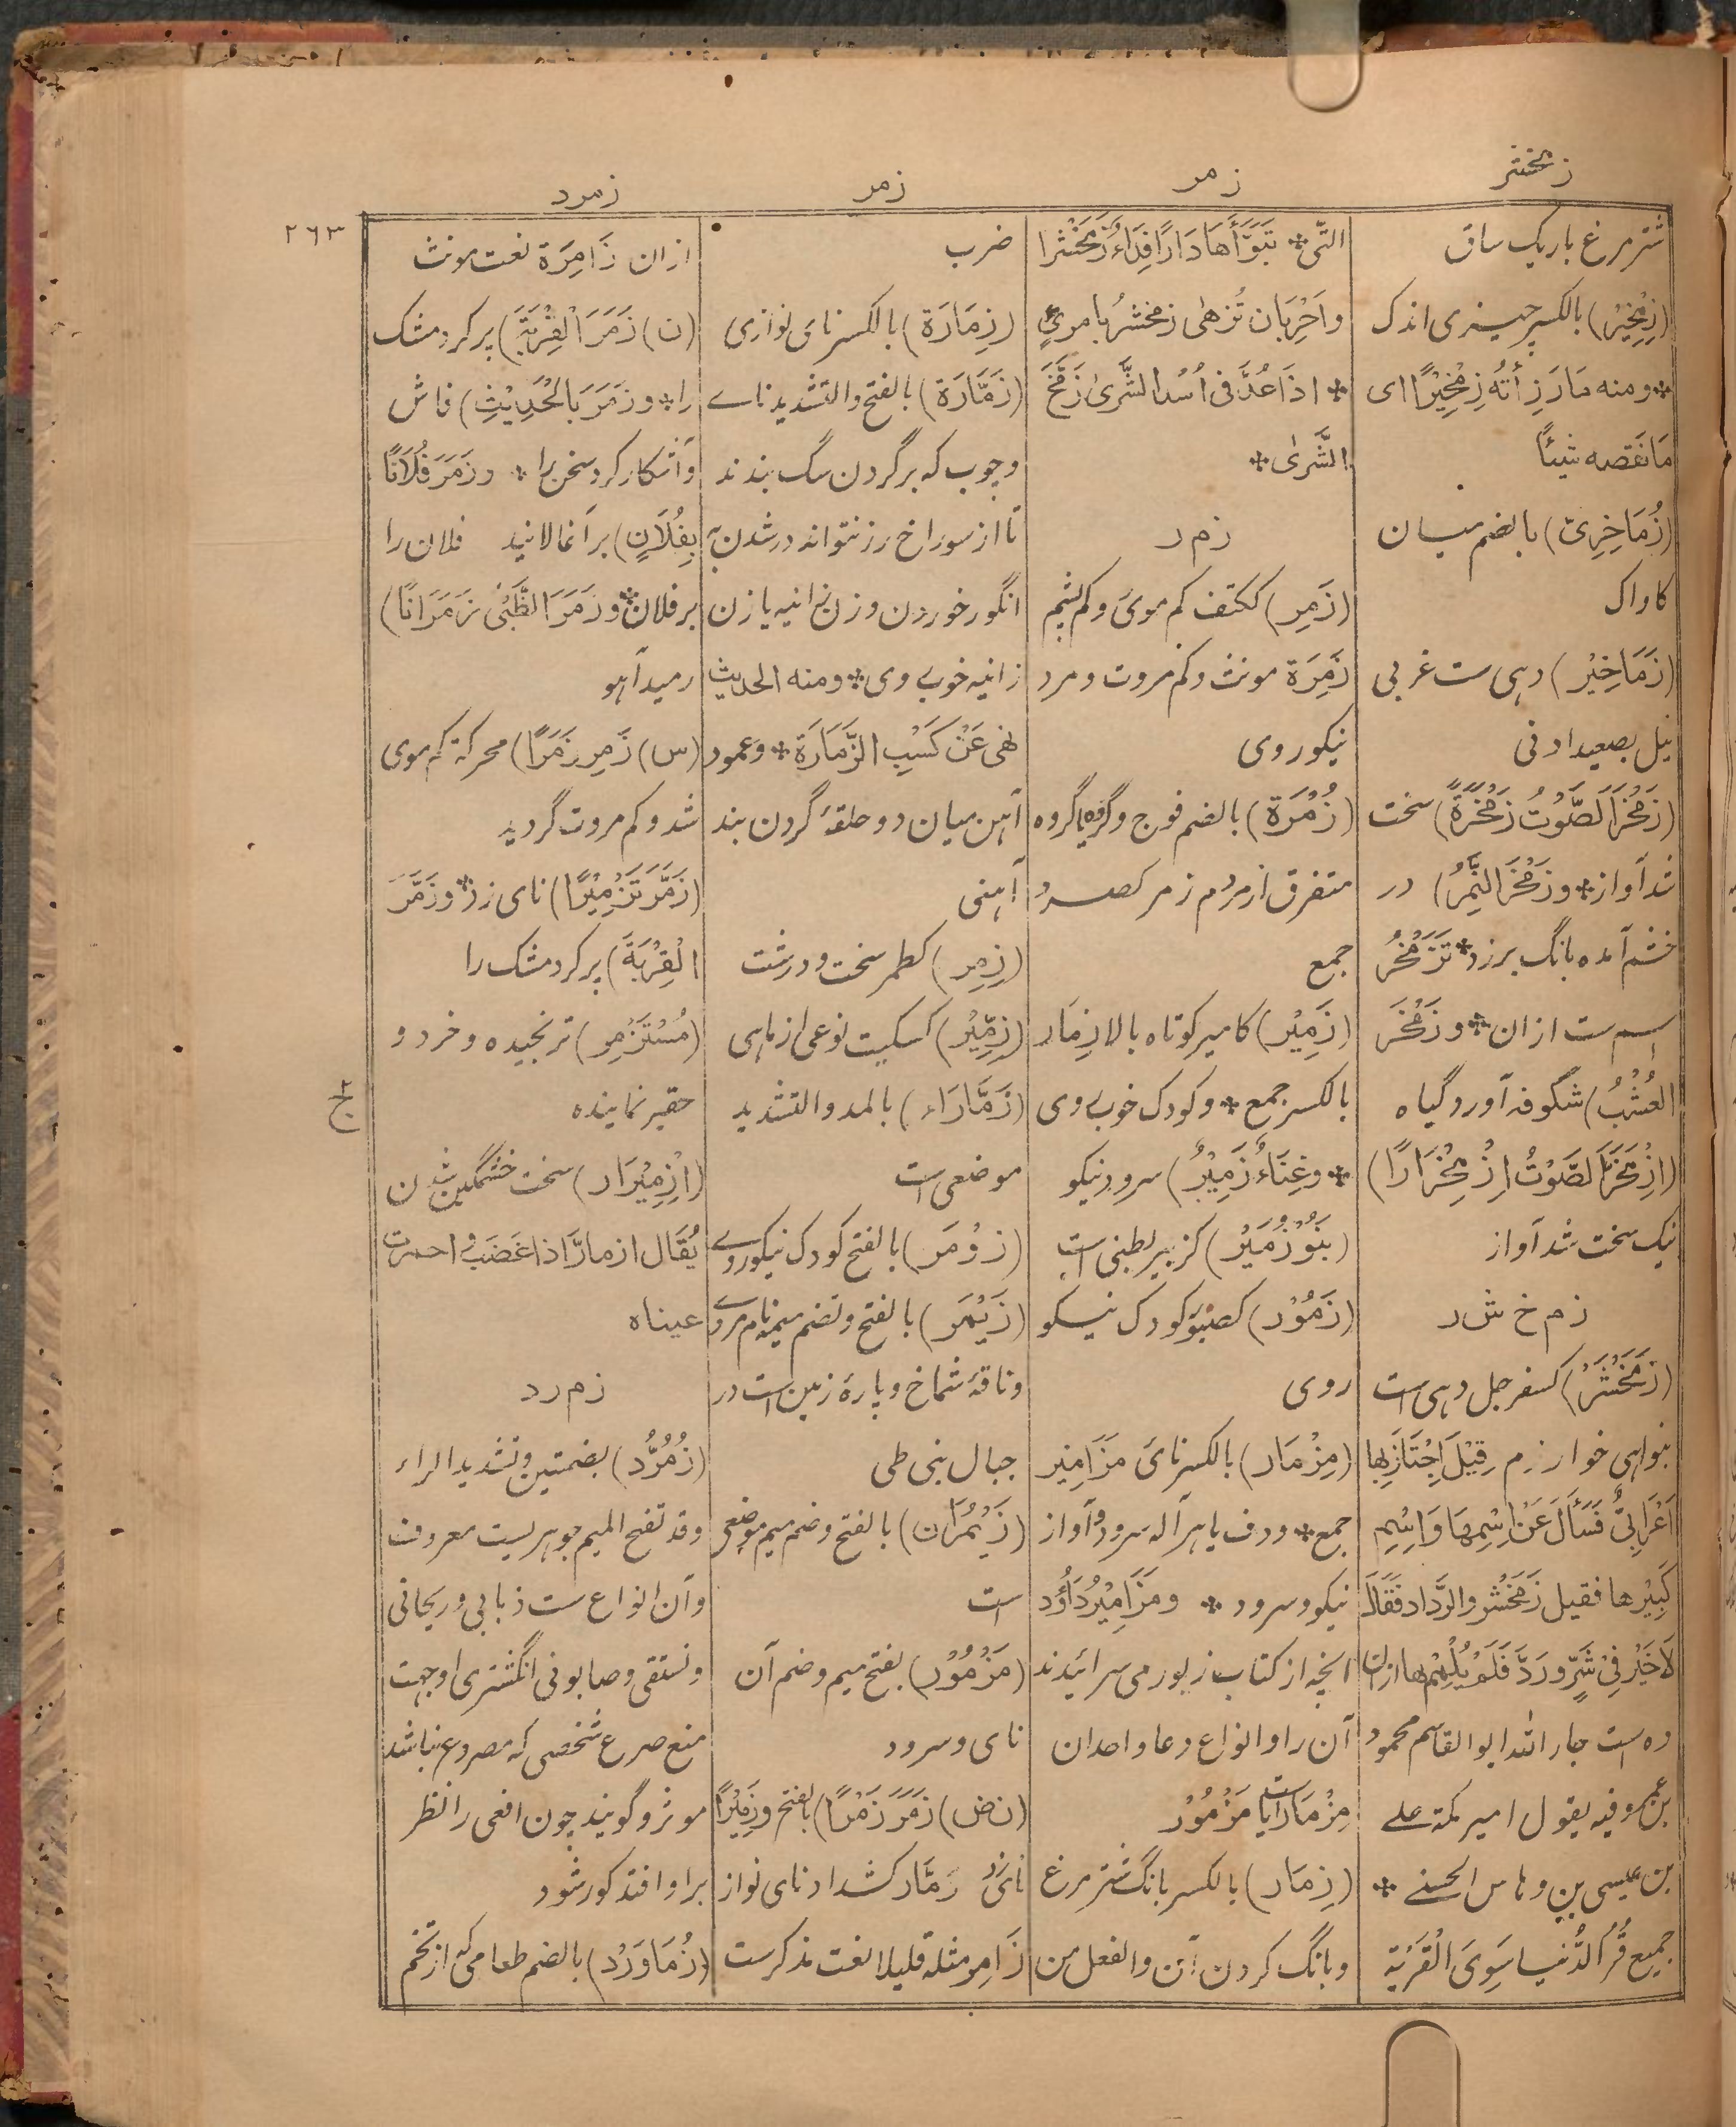 زمخشر
زمر
زمر
زمرد
٢٦٣
شتر مرغ باریک ساق
(زِمْخِیْر) بالکسر چیزی اندک
* ومنه مَارَزِأتُه زِمْخِیْرًا ای
مَانَقَصه شیئًا
(زُمَاخِرِیّ) بالضم میان
کاواک
(زَمَاخِیْر) دهی ست غربی
نیل بصعید ادنی
(زَمْخَرَالصَّوْتُ زَمْخَرَةً) سخت
شد آواز * وزَمْخَرَ النَّمِرُ) در
خشم آمده بانگ برزد * تَزَمْخُر
اسم ست ازان * وزَمْخَرَ
العُشْبُ) شگوفه آورد گیاه
(اِزْمَخَرَّالصَّوْتُ اِزْمِخْرَارًا)
نیک سخت شد آواز
زم خ ش ر
(زَمَخْشَرُ) کسفرجل دهی است
بنواحی خوارزم قِیْلَ اِجْتَازَبِها
اَعْرَابِیٌّ فَسَأَلَ عَنْ اِسْمِهَا وَاِسْمِ
کَبِیْرِها فقیل زَمَخْشَر والرَّداد فَقَالَ
لَاخَیْرَ فِیْ شَرٍّ ورَدٍّ فَلَمْ یُلْمِمْ بها ازان
ده است جار الله ابوالقاسم محمود
بن عمر وفیه یقول امیر مکة علی
بن عیسی بن وهاس الحسنی *
جمیع قُرَی الدُّنیا سِوَی الْقَرْیَةِ
الّتی * تَبَوَّأَهَا دَارًا فِدَاءُ زَمَخْشَرا
واَحْرِبَان تُزهٰی زمخشرُ بامریٍ
* اذَا عُدَّ فی اُسُد الشَّرٰی زَمَخَ
الشَّرٰی *
زم ر
(زَمِر) ککتف کم موی وکم پشم
زَمِرَة مونث وکم مروت ومرد
نیکوروی
(زُمْرَة) بالضم فوج وگروه یا گروه
متفرق از مردم زمر کصرد
جمع
(زَمِیْر) کامیر کوتاه بالا زِمَار
بالکسر جمع * وکودک خوبروی
* وغِنَاءٌ زَمِیْرٌ) سرود نیکو
(بَنُوْزُمَیْر) کزبیر بطنی است
(زَمُوْر) کصبور کودک نیکو
روی
(مِزْمَار) بالکسر نای مَزَامِیْر
جمع * ودف یا هر آله سرود وآواز
نیکو وسرود * ومَزَامِیْرُدَاؤُد
آنچه از کتاب زبور می سرائیدند
آن را وانواع دعا واحدان
مِزْمَار است یا مَزْمُوْر
(زِمَار) بالکسر بانگ شتر مرغ
وبانگ کردن آن والفعل من
ضرب
(زِمَارَة) بالکسر نای نوازی
(زَمَّارَة) بالفتح والتشدید نای
وچوب که برگردن سگ بندند
تا از سوراخ رز نتواند درشدن پی
انگور خوردن وزن زانیه یا زن
زانیه خوبروی * ومنه الحدیث
نهی عَنْ کَسْبِ الزَّمَّارَة * وعمود
آهن میان دو حلقهٔ گردن بند
آهنی
(زِمِر) کطمر سخت ودرشت
(زِمِّیْر) کسکیت نوعی از ماهی
(زَمَّارَاء) بالمد والتشدید
موضعی است
(زَوْمَر) بالفتح کودک نیکوروی
(زَیْمَر) بالفتح وتضم میمه نام مردی
وناقهٔ شماخ وپارهٔ زمین است در
جبال بنی طی
(زَیْمُرَان) بالفتح وضم میم موضعی
است
(مَزْمُوْر) بفتح میم وضم آن
نای وسرود
(ن ض) زَمَرَ زَمْرًا) بالفتح وزَمِیْرًا
نای زد زَمَّار کشداد نای نواز
زَامِر مثله قلیلا نعت مذکرست
ازان زَامِرَة نعت مونث
(ن) زَمَرَ الْقِرْبَةَ) پر کرد مشک
را * وزَمَرَ بالْحَدِیْثِ) فاش
وآشکار کرد سخن را * وزَمَرَ فُلَانًا
بِفُلَانٍ) برآغالانید فلان را
بر فلان * وزَمَرَ الظَّبْیُ زَمَرَانًا)
رمید آهو
(س) زَمِرَ زَمَرًا) محرکة کم موی
شد وکم مروت گردید
(زَمَّرَ تَزْمِیْرًا) نای زد * وزَمَّرَ
الْقِرْبَةَ) پر کرد مشک را
(مُسْتَزْمِر) ترنجیده وخرد و
حقیر نماینده
(اِزْمِیْرَار) سخت خشمگین شدن
یُقَال ازمأرَّ اذا غَضَب واحمرت
عیناه
زم ر د
(زُمُرُّد) بضمتین وتشدید الراء
وقد تفتح المیم جوهریست معروف
وآن انواع ست ذبابی وریحانی
وسلقی وصابونی انگشتری او جهت
منع صرع شخصی که مصروع نباشد
موثر وگویند چون افعی را نظر
براو افتد کور شود
(زُمَاوَرْد) بالضم طعامی که از تخم